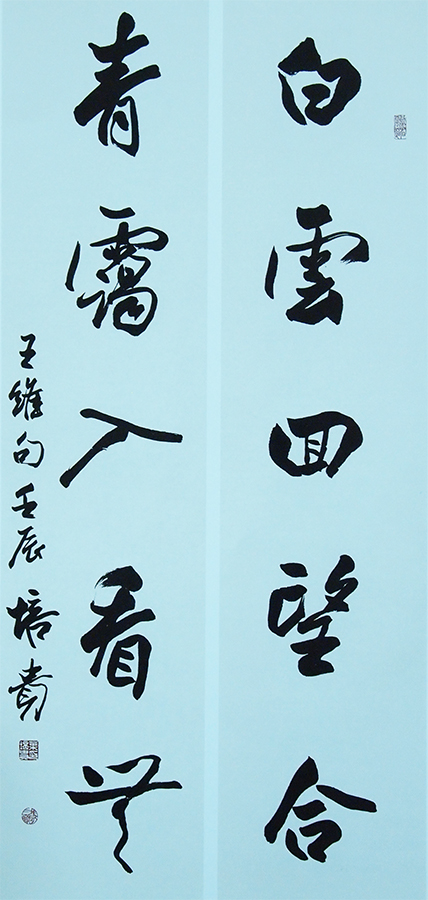 白雲回望合
青靄入看無
王維句壬辰培貴